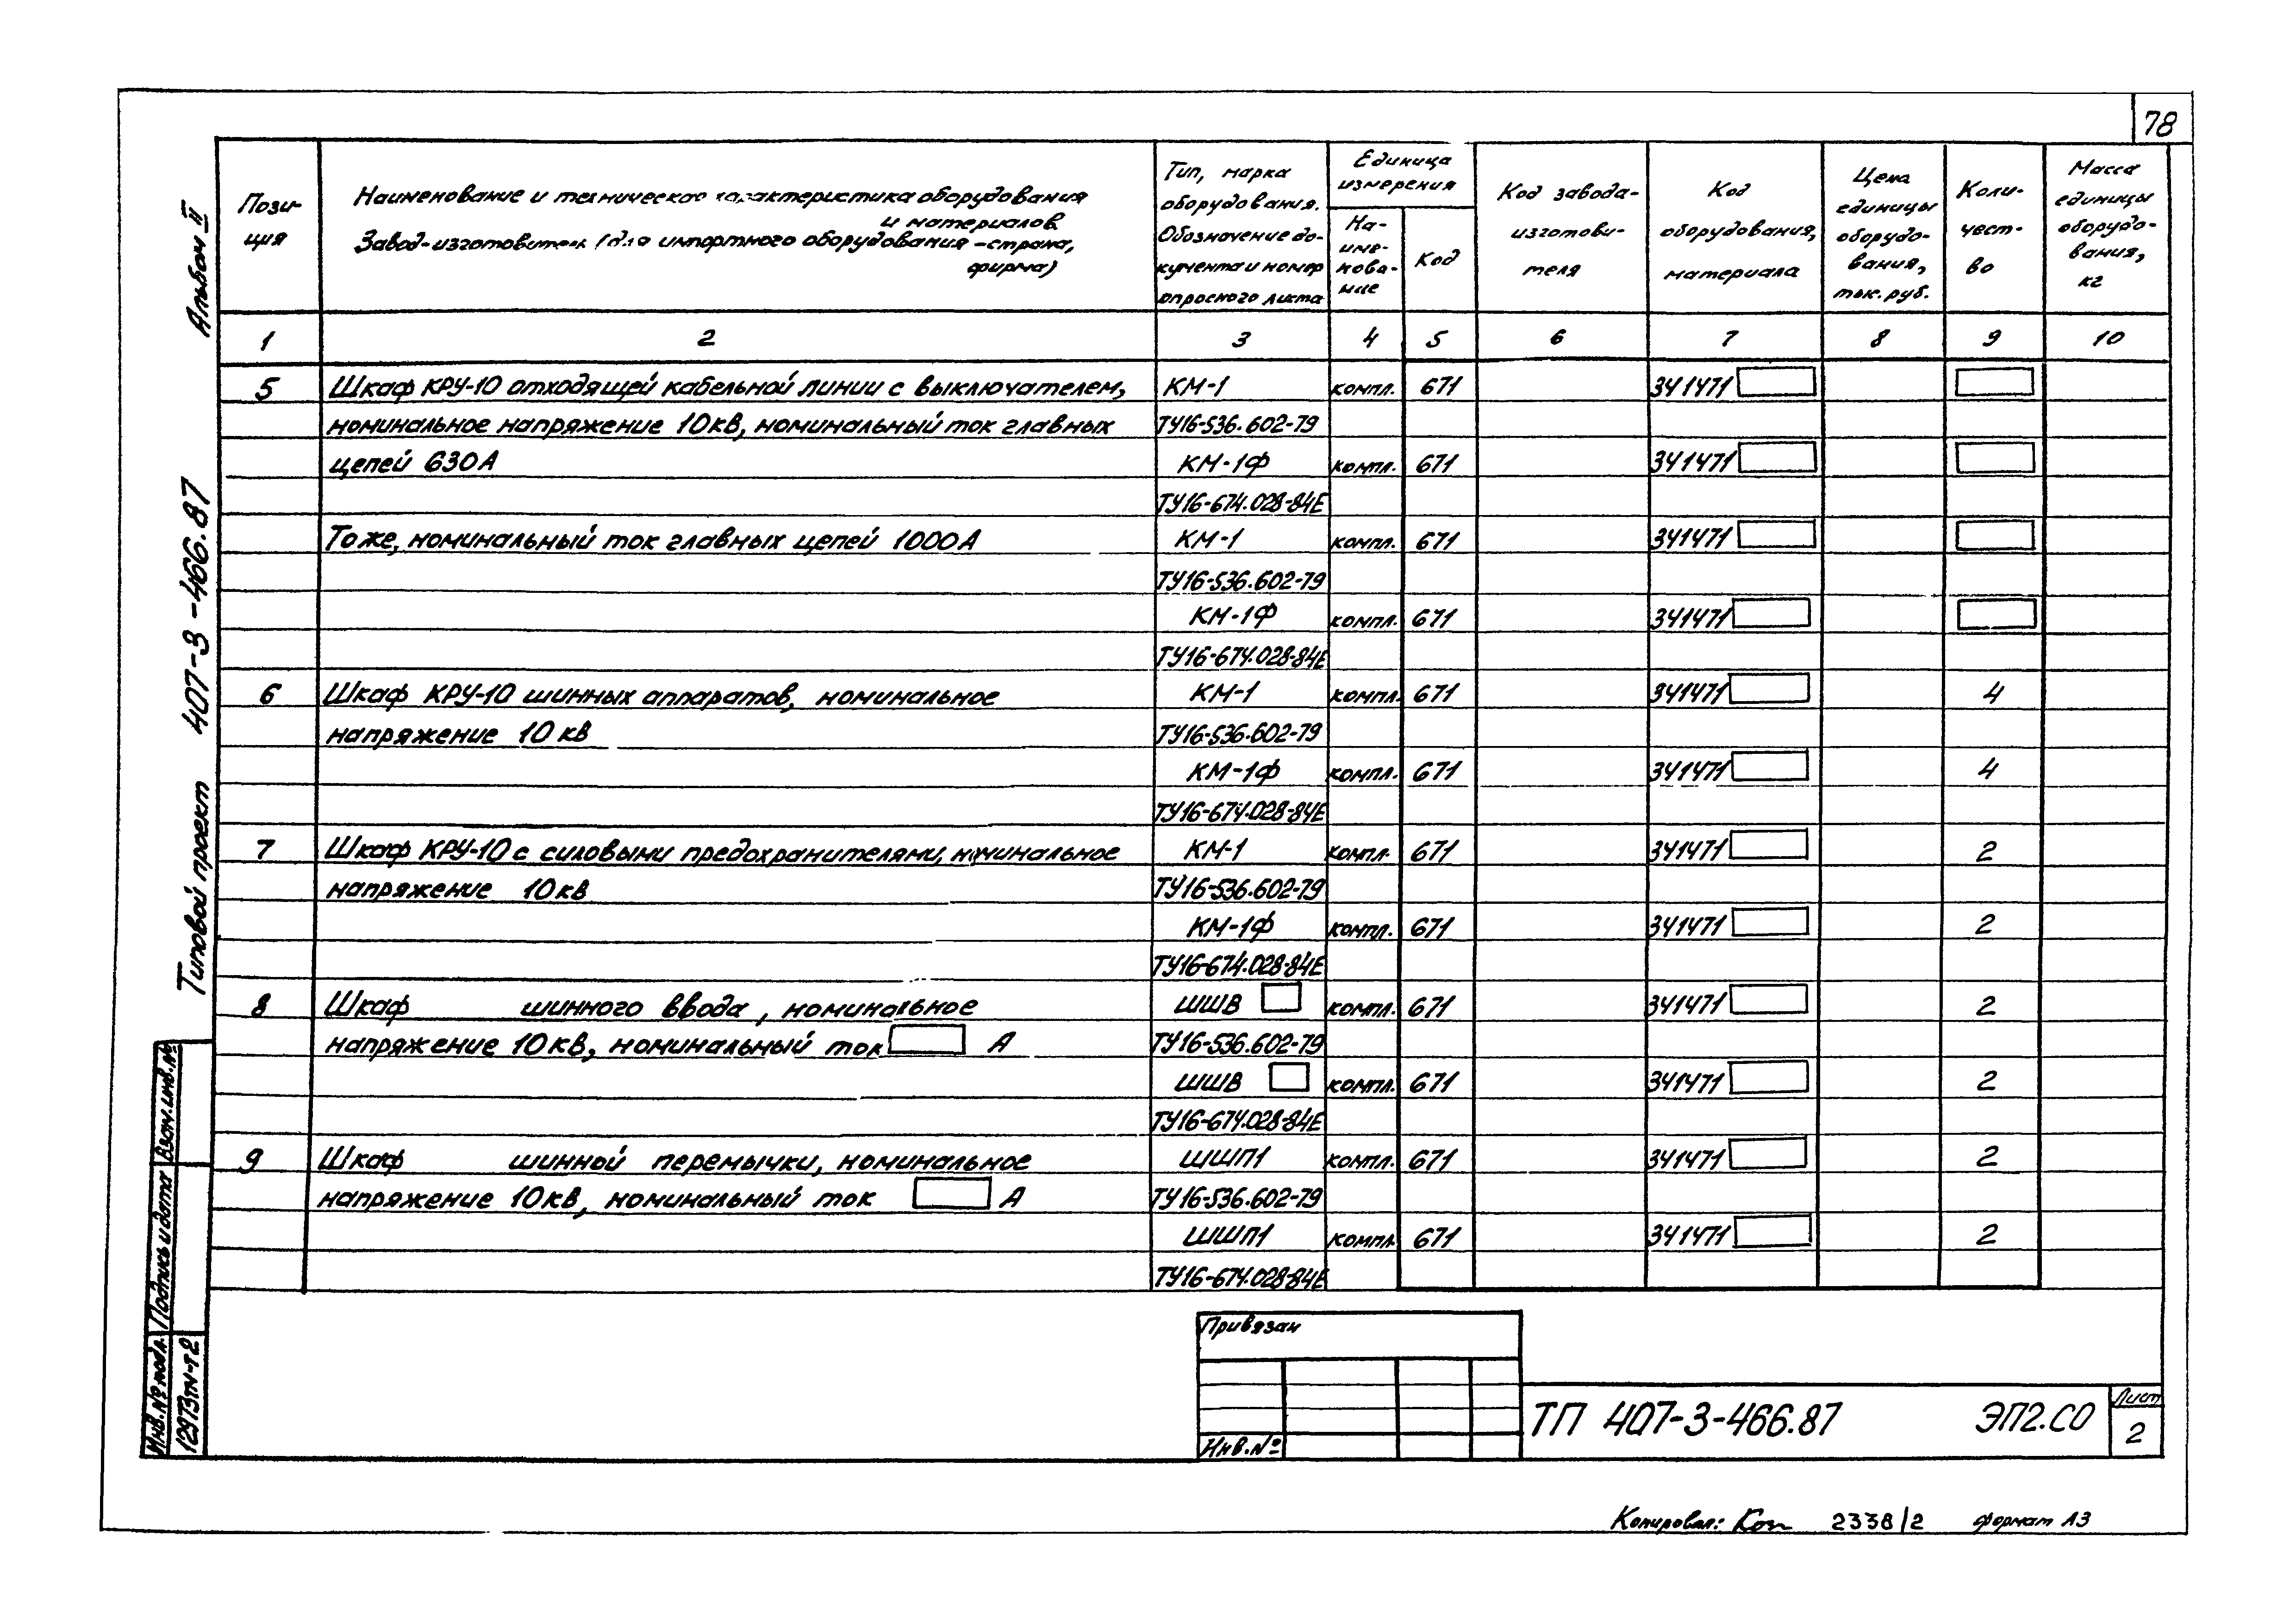 78
Альбом II
Типовой проект 407-3-466.87
Пози-
ция
Наименование и техническая характеристика оборудования
и материалов
Завод-изготовитель (для импортного оборудования - страна,
фирма)
Тип, марка
оборудования.
Обозначение до-
кумента и номер
опросного листа
Единица
измерения
На-
име-
нова-
ние
Код
Код завода-
изготови-
теля
Код
оборудования,
материала
Цена
единицы
оборудо-
вания,
тыс. руб.
Коли-
чест-
во
Масса
единицы
оборудо-
вания,
кг
1 2 3 4 5 6 7 8 9 10
5 Шкаф КРУ-10 отходящей кабельной линии с выключателем, КМ-1 компл. 671 341471
номинальное напряжение 10кВ, номинальный ток главных ТУ16-536.602-79
цепей 630А КМ-1Ф компл. 671 341471
ТУ16-674.028-84Е
Тоже, номинальный ток главных цепей 1000А КМ-1 компл. 671 341471
ТУ16-536.602-79
КМ-1Ф компл. 671 341471
ТУ16-674.028-84Е
6 Шкаф КРУ-10 шинных аппаратов, номинальное КМ-1 компл. 671 341471 4
напряжение 10 кВ ТУ16-536.602-79
КМ-1Ф компл. 671 341471 4
ТУ16-674.028-84Е
7 Шкаф КРУ-10 с силовыми предохранителями, номинальное КМ-1 компл. 671 341471 2
напряжение 10кВ ТУ16-536.602-79
КМ-1Ф компл. 671 341471 2
ТУ16-674.028-84Е
8 Шкаф шинного ввода, номинальное ШШВ компл. 671 341471 2
напряжение 10кВ, номинальный ток А ТУ16-536.602-79
ШШВ компл. 671 341471 2
ТУ16-674.028-84Е
9 Шкаф шинной перемычки, номинальное ШШП1 компл. 671 341471 2
напряжение 10кВ, номинальный ток А ТУ16-536.602-79
ШШП1 компл. 671 341471 2
ТУ16-674.028-84Е
Взам.инв.№
Подпись и дата
Инв.№ подл.
12973тм-т2
Привязан
Инв.№
ТП 407-3-466.87 ЭП2.СО
Лист
2
Копировал: Коп 2338/2 формат А3